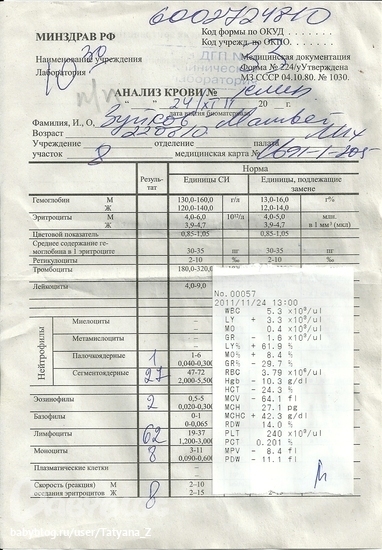 6002724810
МИНЗДРАВ РФ
Код формы по ОКУД
Код учрежд. по ОКПО.
Наименование учреждения
Медицинская документация
Лаборатория
Форма № 224/у Утверждена
МЗ СССР 04.10.80. № 1030.
АНАЛИЗ КРОВИ №
24/XI 11 20 г.
дата взятия биоматериала
Фамилия, И., О,
Возраст
Учреждение отделение палата
участок 8 медицинская карта №
Норма
Резуль-тат
Единицы СИ
Единицы, подлежащие замене
Гемоглобин М 130,0-160,0 г/л 13,0-16,0 г%
Ж 120,0-140,0 12,0-14,0
Эритроциты М 4,0-6,0 10¹²/л 4,0-5,0 млн.
Ж 3,9-4,7 3,9-4,7 в 1 мм³ (мкл)
Цветовой показатель 0,85-1,05 0,85-1,05
Среднее содержание ге-
моглобина в 1 эритроците 30-35 пг 30-35 пг
Ретикулоциты 2-10 ‰ 2-10 ‰
Тромбоциты 180,0-320,0
Лейкоциты 4,0-9,0
Нейтрофилы
Миелоциты –
Метамиелоциты –
Палочкоядерные 1 1-6
0,040-0,300
Сегментоядерные 27 47-72
2,000-5,500
Эозинофилы 2 0,5-5
0,020-0,300
Базофилы 0-1
0-0,065
Лимфоциты 62 19-37
1,200-3,000
Моноциты 8 3-11
0,090-0,600
Плазматические клетки –
Скорость (реакция) М 2-10
оседания эритроцитов Ж 8 2-15
No.00057
2011/11/24 13:00
WBC 5.3 x10³/ul
LY + 3.3 x10³/ul
MO 0.4 x10³/ul
GR - 1.6 x10³/ul
LY% + 61.9 %
MO% + 8.4 %
GR% - 29.7 %
RBC 3.79 x10⁶/ul
Hgb - 10.3 g/dl
HCT - 24.3 %
MCV - 64.1 fl
MCH 27.1 pg
MCHC + 42.3 g/dl
RDW 14.0 %
PLT 240 x10³/ul
PCT 0.201 %
MPV - 8.4 fl
PDW - 11.1 fl
babyblog.ru/user/Tatyana_Z